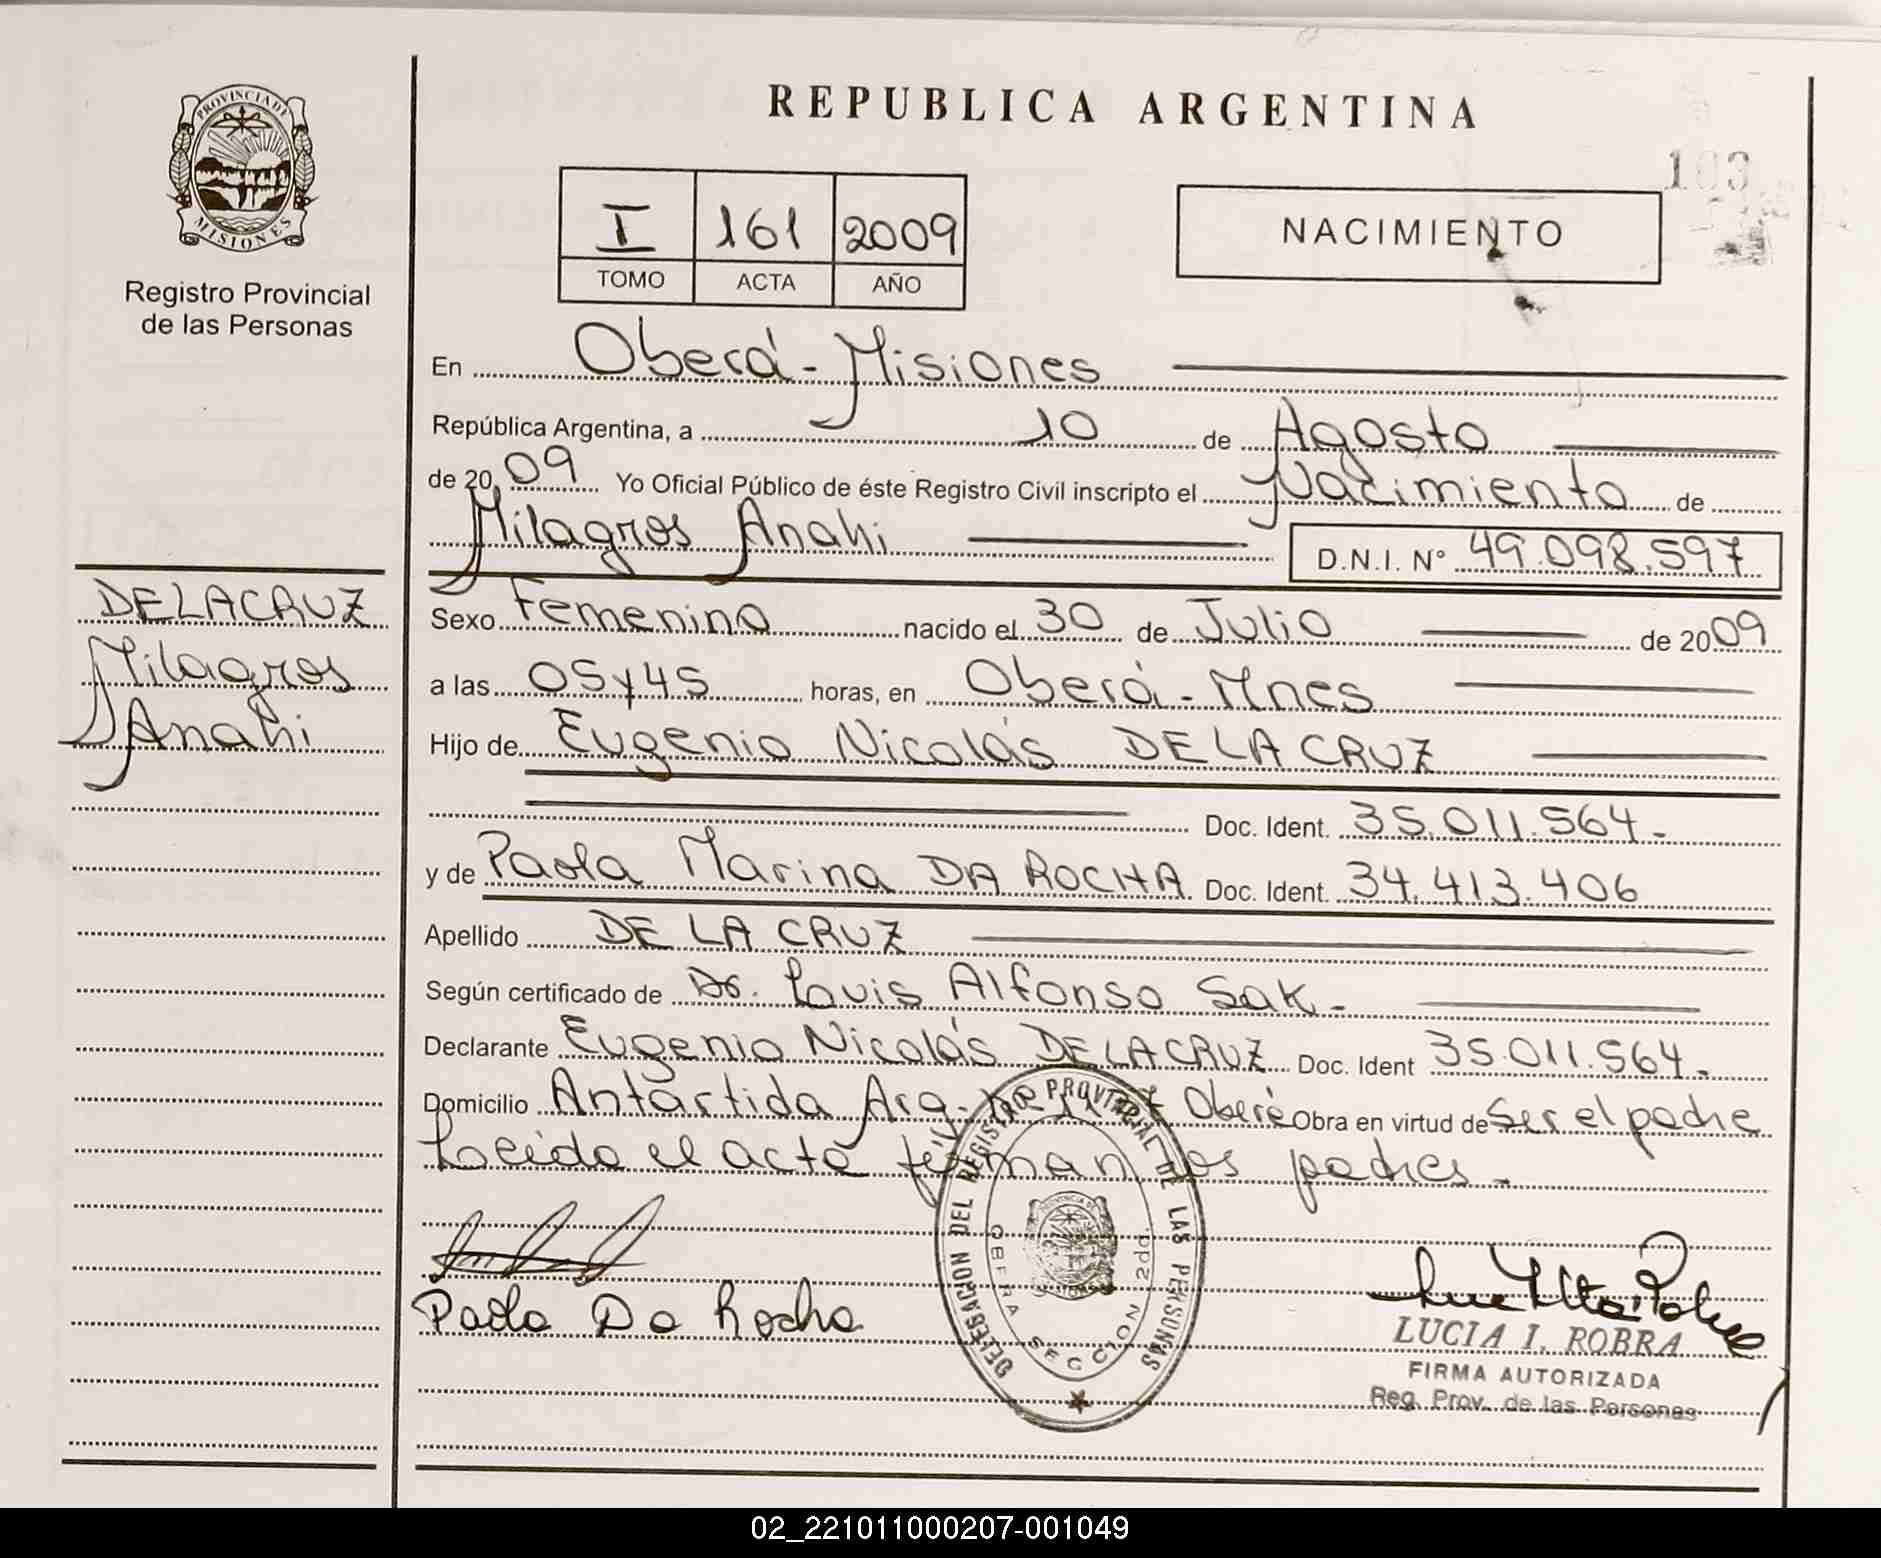 REPUBLICA ARGENTINA
PROVINCIA DE MISIONES
Registro Provincial
de las Personas
103
I 161 2009
TOMO ACTA AÑO
NACIMIENTO
En Oberá - Misiones
República Argentina, a 10 de Agosto
de 2009 Yo Oficial Público de éste Registro Civil inscripto el Nacimiento de
Milagros Anahi D.N.I. N° 49.098.597
DE LA CRUZ
Milagros
Anahi
Sexo Femenino nacido el 30 de Julio de 2009
a las 05y45 horas, en Oberá - Mnes
Hijo de Eugenio Nicolás DE LA CRUZ
Doc. Ident. 35.011.564.-
y de Paola Marina DA ROCHA Doc. Ident. 34.413.406
Apellido DE LA CRUZ
Según certificado de Dr. Louis Alfonso Sak.-
Declarante Eugenio Nicolás DE LA CRUZ Doc. Ident 35.011.564.-
Domicilio Antártida Arg. Oberá Obra en virtud de Ser el padre
Leido el acta firman los padres.-
DELEGACION DEL REGISTRO PROVINCIAL DE LAS PERSONAS
OBERA SECCION 2da.
Paola Da Rocha
LUCIA I. ROBRA
FIRMA AUTORIZADA
Reg. Prov. de las Personas
02_221011000207-001049